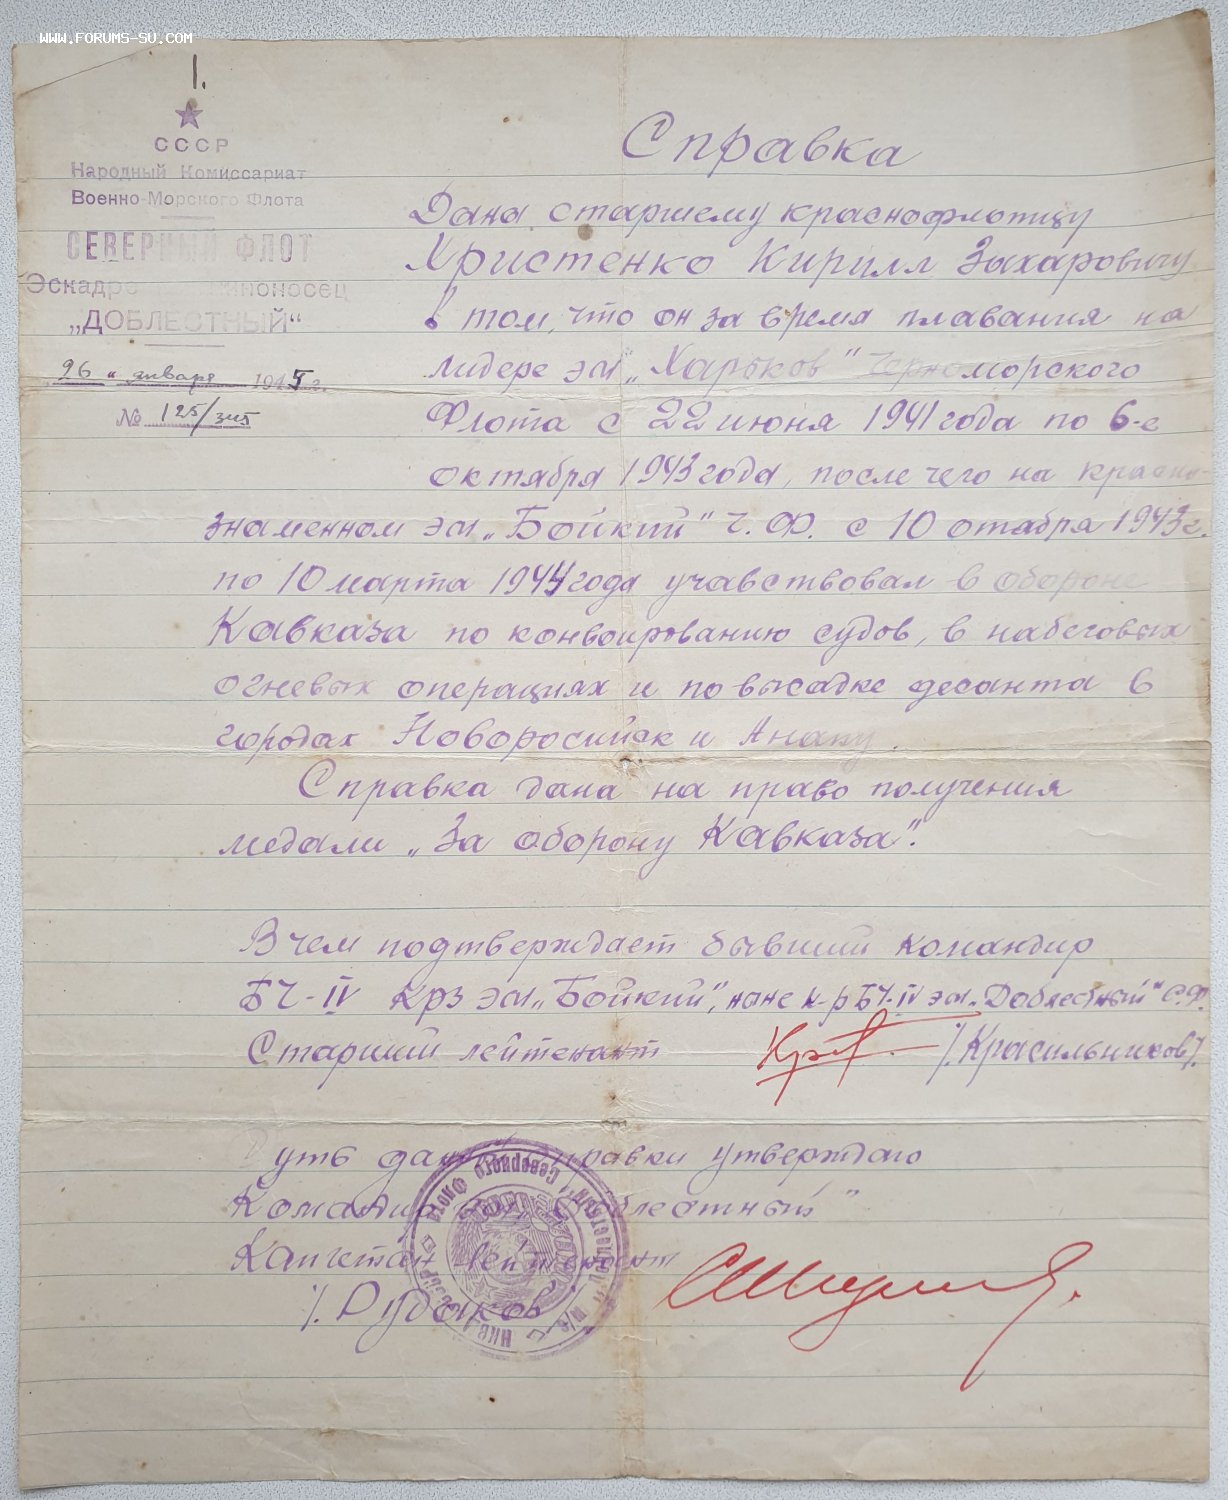 www.forums-su.com
1.
СССР
Народный Комиссариат
Военно-Морского Флота
СЕВЕРНЫЙ ФЛОТ
Эскадро миноносец
„ДОБЛЕСТНЫЙ“
26 " января 1945 г.
№ 125/
Справка
Дана старшему краснофлотцу
Христенко Кирилл Захаровичу
в том, что он за время плавания на
лидере эм „Харьков" Черноморского
Флота с 22 июня 1941 года по 6-е
октября 1943 года, после чего на красно-
знаменном эм „Бойкий" Ч.Ф. с 10 отабря 1943 г.
по 10 марта 1944 года учавствовал в обороне
Кавказа по конвоированию судов, в набеговых
огневых операциях и по высадке десанта в
городах Новоросийск и Анапу.
Справка дана на право получения
медали „За оборону Кавказа".
В чем подтверждает бывший командир
БЧ-IV Крз эм „Бойкий", ныне к-р БЧ-IV эм. Доблестный" С.Ф.
Старший лейтенант /Красильников/.
Суть даной справки утверждаю
Командир эм „Доблестный"
Капитан лейтенант
/. Рудаков
Северного Флота